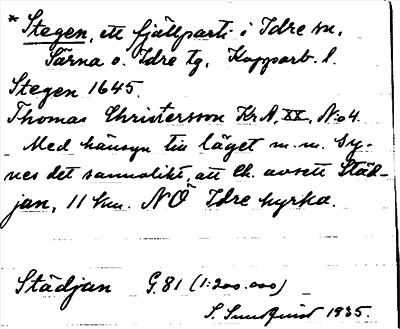 * Stegen, ett fjällparti i Idre sn.
Särna o. Idre tg, Kopparb. l.
Stegen 1645.
Thomas Christersson KrA, XX, No 4.
Med hänsyn till läget m.m. sy-
nes det sannolikt, att Ch. avsett Städ-
jan, 11 km. NÖ Idre kyrka.
Städjan G. 81 (1:200.000)
S. Sundqvist 1935.